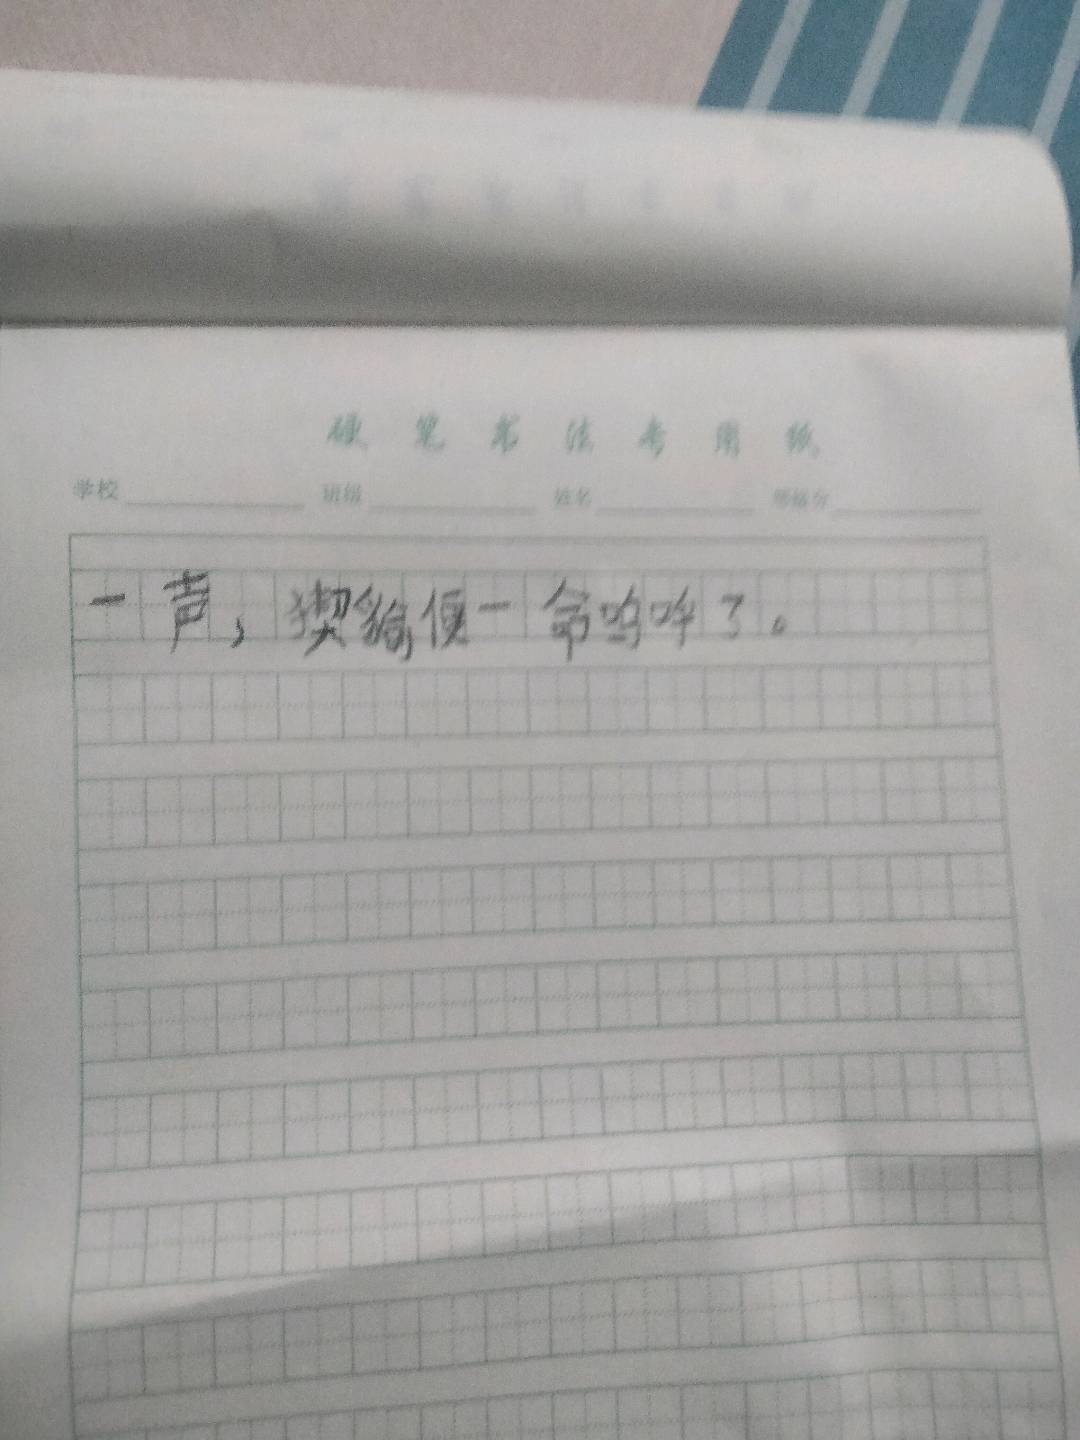 硬笔书法专用纸
学校 班级 姓名
一声，猰貐便一命呜呼了。